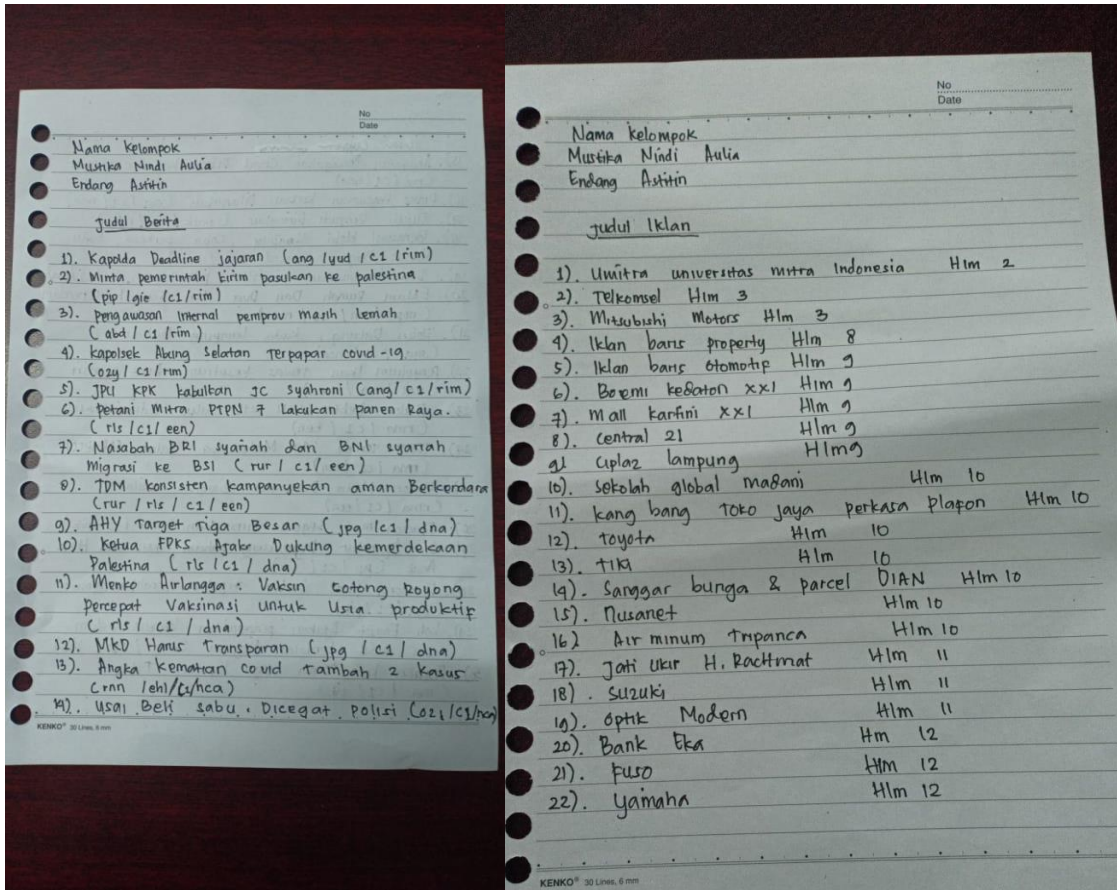 No
Date
Nama Kelompok
Mustika Nindi Aulia
Endang Astitin
Judul Berita
1). Kapolda Deadline jajaran (ang / yud / c1 / rim)
2). Minta pemerintah kirim pasukan ke palestina
(pip / gie / c1 / rim)
3). Pengawasan Internal pemprov masih lemah
(abd / c1 / rim)
4). Kapolsek Abung Selatan Terpapar covid-19
(ozy / c1 / rim)
5). JPU KPK kabulkan JC Syahroni (ang / c1 / rim)
6). Petani Mitra PTPN 7 Lakukan panen Raya.
(rls / c1 / een)
7). Nasabah BRI syariah dan BNI syariah
Migrasi ke BSI (rur / c1 / een)
8). TDM konsisten kampanyekan aman Berkendara
(rur / rls / c1 / een)
9). AHY Target Tiga Besar (jpg / c1 / dna)
10). Ketua FPKS Ajak Dukung kemerdekaan
Palestina (rls / c1 / dna)
11). Menko Airlangga : Vaksin Gotong Royong
percepat Vaksinasi untuk Usia produktif
(rls / c1 / dna)
12). MKD Harus Transparan (jpg / c1 / dna)
13). Angka kematian covid tambah 2 kasus
(rnn / ehl / c1 / nca)
14). Usai Beli sabu, Dicegat polisi (ozy / c1 / nca)
KENKO® 30 Lines, 6 mm
No
Date
Nama kelompok
Mustika Nindi Aulia
Endang Astitin
Judul Iklan
1). Umitra universitas mitra Indonesia Hlm 2
2). Telkomsel Hlm 3
3). Mitsubishi Motors Hlm 3
4). Iklan baris property Hlm 8
5). Iklan baris otomotif Hlm 9
6). Boemi kedaton xx1 Hlm 9
7). Mall kartini xx1 Hlm 9
8). Central 21 Hlm 9
9) Ciplaz lampung Hlm 9
10). Sekolah global madani Hlm 10
11). Kang bang Toko jaya perkasa Plafon Hlm 10
12). Toyota Hlm 10
13). TIKI Hlm 10
14). Sanggar bunga & parcel DIAN Hlm 10
15). Nusanet Hlm 10
16) Air minum Tripanca Hlm 10
17). Jati Ukir H. Rachmat Hlm 11
18). Suzuki Hlm 11
19). Optik Modern Hlm 11
20). Bank Eka Hm 12
21). Fuso Hlm 12
22). Yamaha Hlm 12
KENKO® 30 Lines, 6 mm